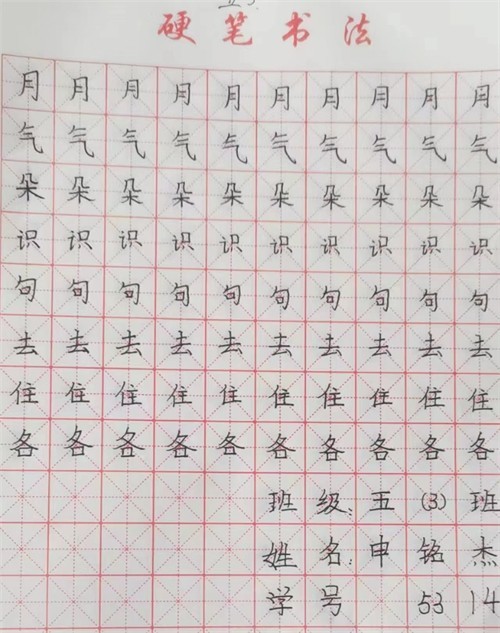 硬笔书法
月月月月月月月月月月
气气气气气气气气气气
朵朵朵朵朵朵朵朵朵朵
识识识识识识识识识识
句句句句句句句句句句
去去去去去去去去去去
住住住住住住住住住住
各各各各各各各各各各
班级:五(3)班
姓名:申铭杰
学号 5314